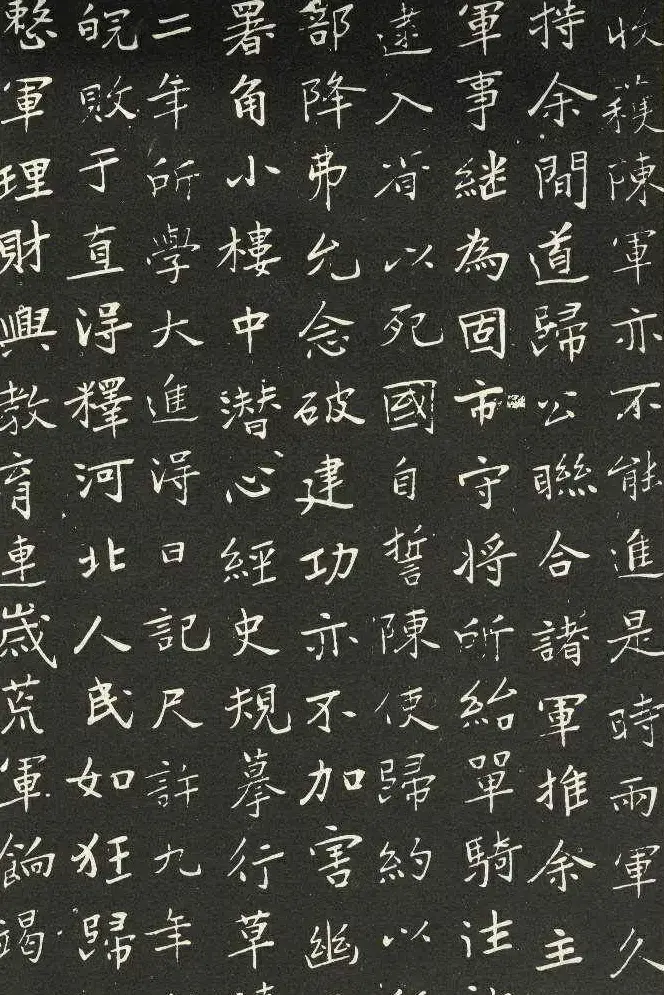 收穫陳軍亦不能進是時兩軍久
持余間道歸公聯合諸軍推余主
軍事繼為固市守將所紿單騎往
逮入省以死國自誓陳使歸約以
部降弗允念破建功亦不加害幽
署角小樓中潛心經史規摹行草
二年所學大進得日記尺許九年
皖敗于直得釋河北人民如狂歸
整軍理財興教育連歲荒軍餉竭